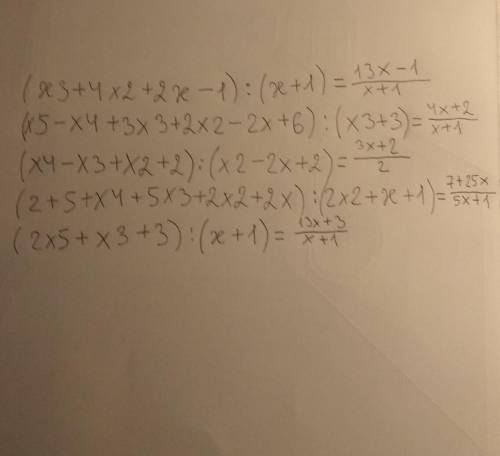 (x3+4x2+2x-1):(x+1)=13x-1/x+1
(x5-x4+3x3+2x2-2x+6):(x3+3)=4x+2/x+1
(x4-x3+x2+2):(x2-2x+2)=3x+2/2
(2+5+x4+5x3+2x2+2x):(2x2+x+1)=7+25x/5x+1
(2x5+x3+3):(x+1)=13x+3/x+1